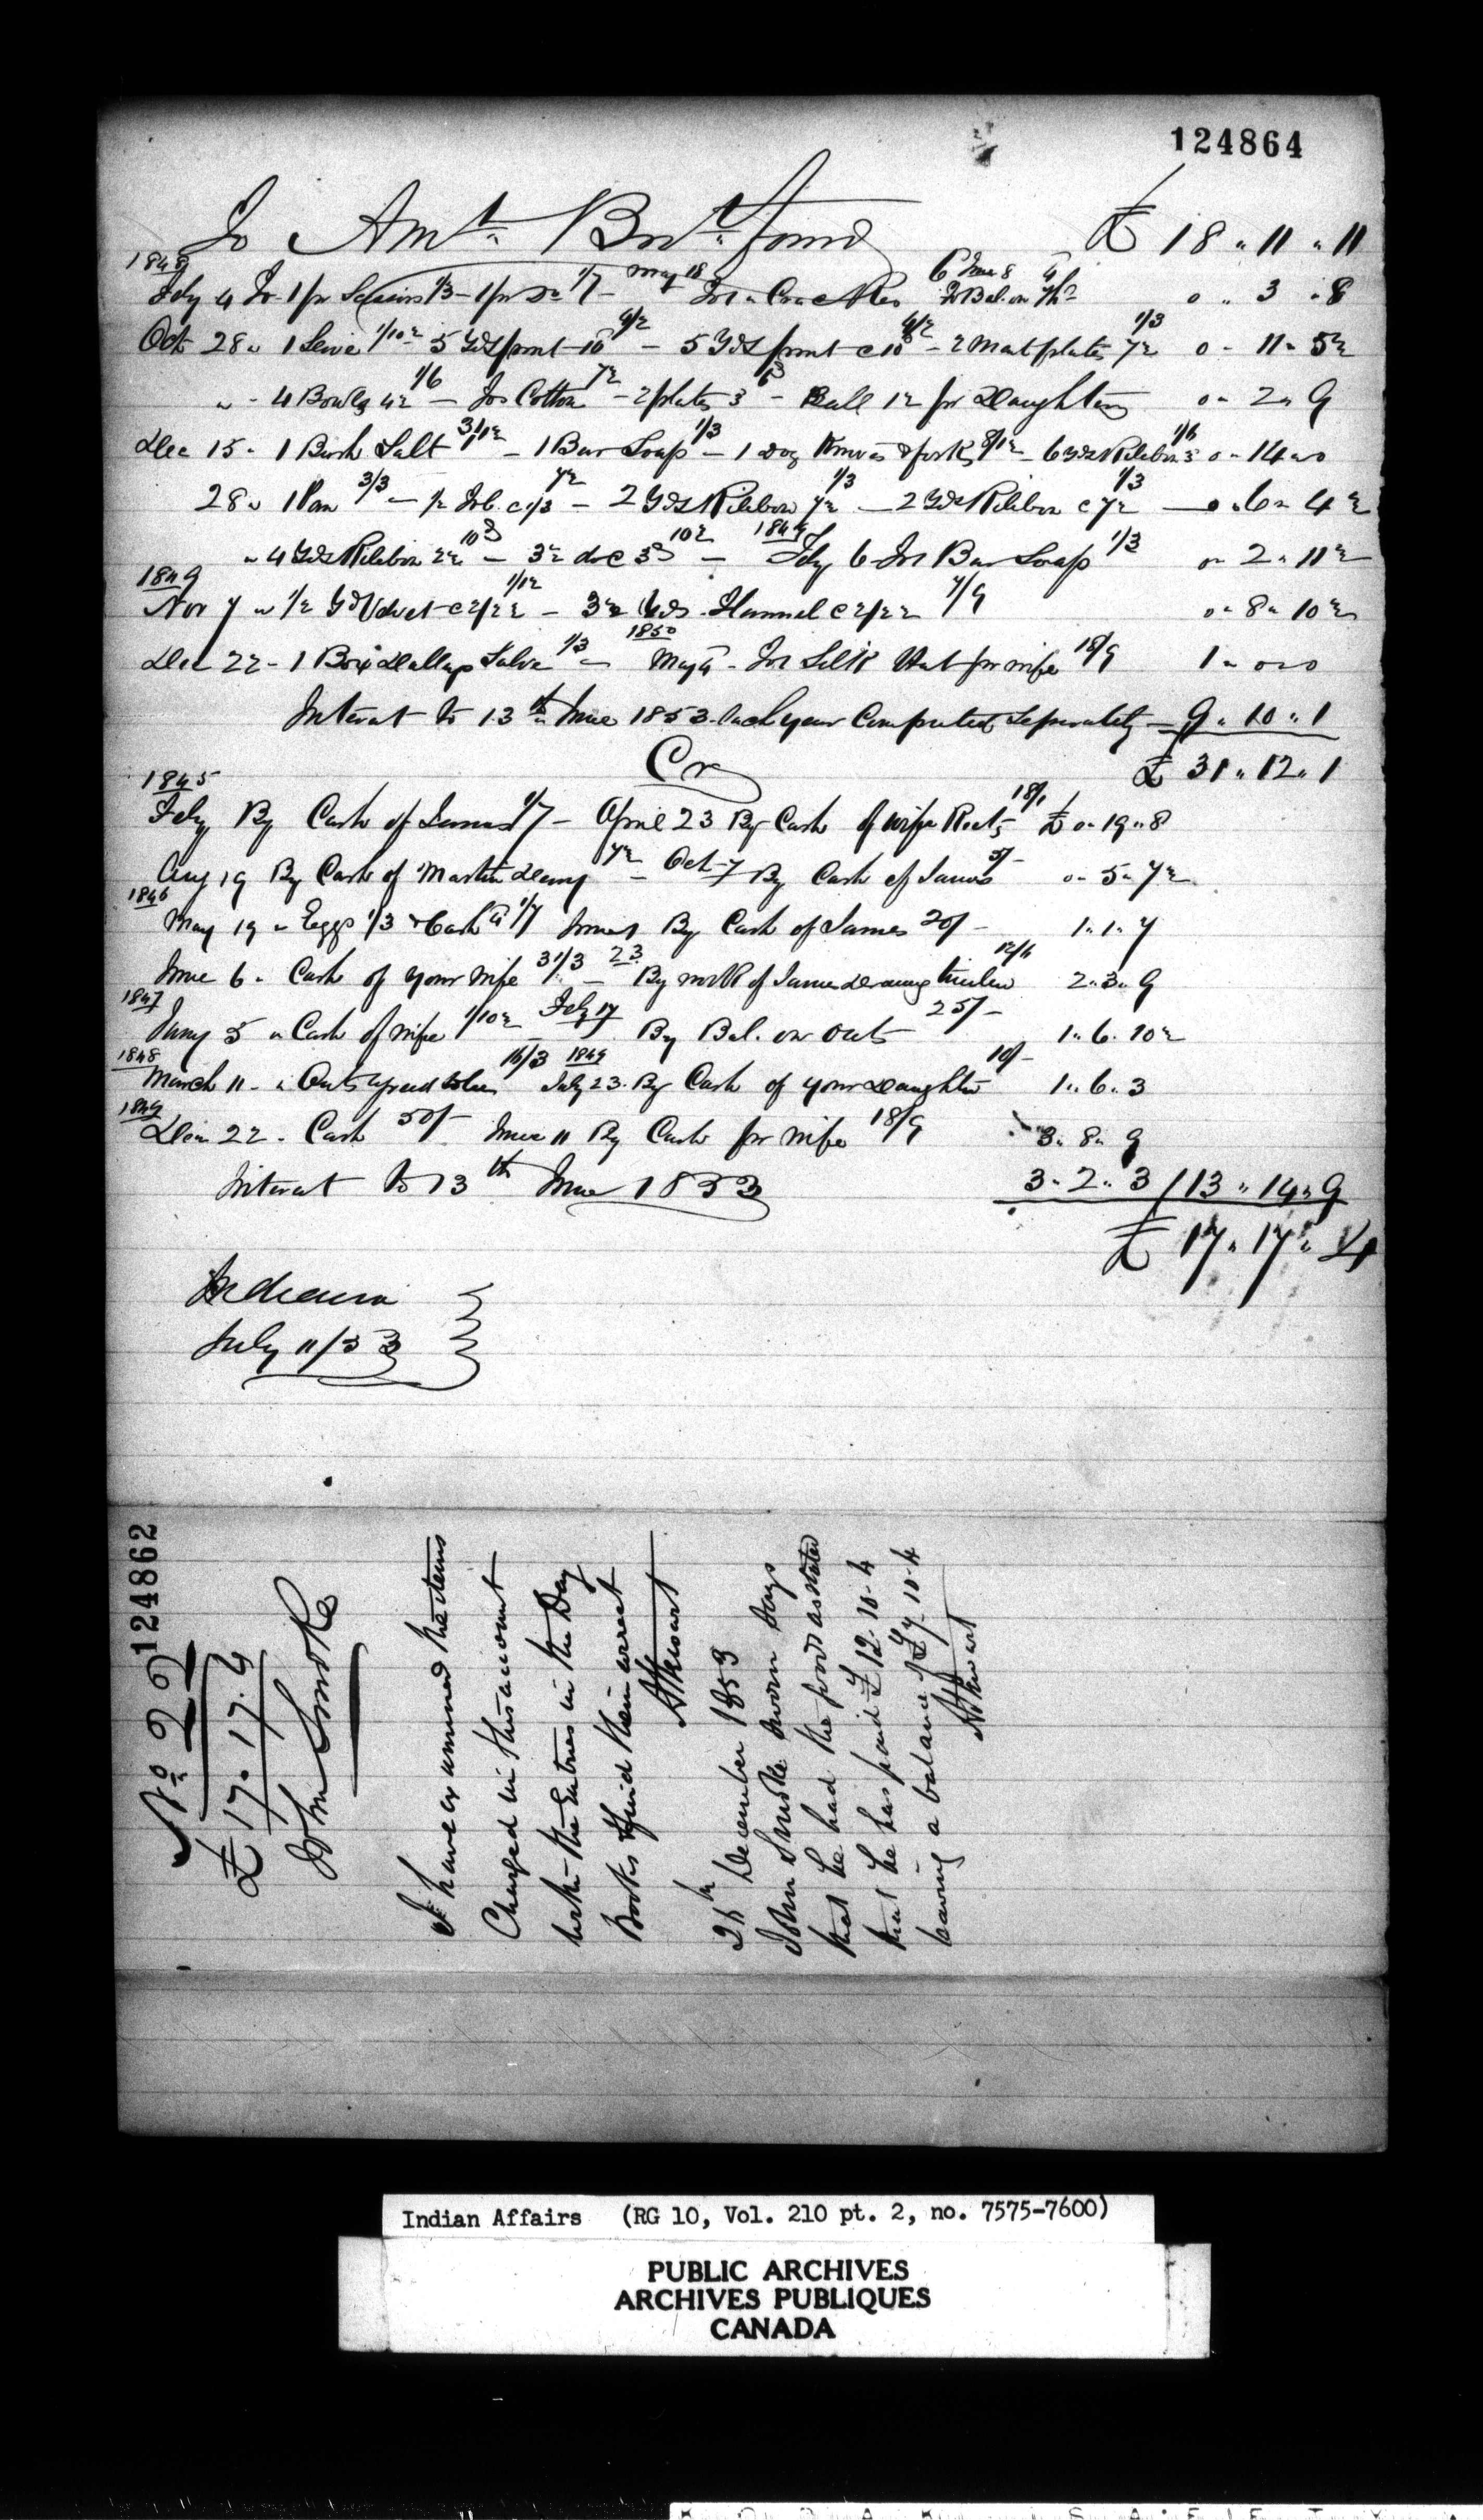 124864
To Amt. Brt. forwd £ 18 " 11 " 11
1848
Feby 4 To 1 pr Scissors 1/3 - 1 pr Do 1/7 - May 18 To Crackers 6 June 8 To Bal. on 0 " 3 " 8
Oct 28 " 1 5 Yds print 10 - 5 Yds print c 10 - 2 Meat plates 7½ 1/3 0 " 11 " 5½
" - 4 Bowls 4½ 1/6 - To Cotton 7½ - 2 plates 3 6 - Ball 1½ pr Daughter 0 " 2 " 9
Dec 15 " 1 Bush Salt - 1 Bar Soap 1/3 - 1 Doz Knives & forks - 6 Yds Ribbon 3 1/6 0 " 14 " 0
28 " 1 Pan 3/3 - ½ lb c 1/3 7½ - 2 Yds Ribbon 7½ 1/3 - 2 Yds Ribbon c 7½ 1/3 - 0 " 6 " 4½
" 4 Yds Ribbon 2½ 10 - 3½ do c 3 10½ - 1849 Feby 6 To 1 Bar Soap 1/3 0 " 2 " 11½
1849
Nov 7 " ½ Yd Velvet c 2/2½ 1/1½ - 3½ Yds Flannel c 2/2½ 7/9 0 " 8 " 10½
Dec 22 - 1 Box Dalleys Salve 1/3 - 1850 May 4 - To 1 Silk Hat pr wife 18/9 1 " 0 " 0
Interest to 13th June 1853 each year Computed Seperately 9 " 10 " 1
£ 31 " 12 " 1
Cr
1845
Feby By Cash of James 1/7 - April 23 By Cash of wife 18/1 £ 0 " 19 " 8
Aug 19 By Cash of Martin 7½ - Oct 7 By Cash of James 5/- 0 " 5 " 7½
1846
May 19 " Eggs 1/3 & Cash 4 1/7 June 1 By Cash of James 20/- 1 " 1 " 7
June 6 " Cash of your wife 31/3 - 23 By work of James 12/6 2 " 3 " 9
1847
Jany 5 " Cash of wife 1/10½ Feby 17 By Bal. on Oats 25/- 1 " 6 " 10½
1848
March 11 - " Oats 16/3 1849 July 23 By Cash of your Daughter 10/- 1 " 6 " 3
1849
Decm 22 - Cash 50/- June 11 By Cash pr wife 18/9 3 " 8 " 9
Interest to 13th June 1853 3 " 2 " 3 / 13 " 14 " 9
£ 17 " 17 " 4
Indiana
July 11/53
124862
No 29
£ 17. 17. 4
John Smoke
I have examined the items
Charged in this account
with the Entries in the Day
Books & find them correct
AStewart
26th December 1853
John Smoke sworn Says
that he had the goods as stated
that he has paid £ 12. 10. 4
leaving a balance of £ 7. 10. 4
AStewart
Indian Affairs (RG 10, Vol. 210 pt. 2, no. 7575-7600)
PUBLIC ARCHIVES
ARCHIVES PUBLIQUES
CANADA